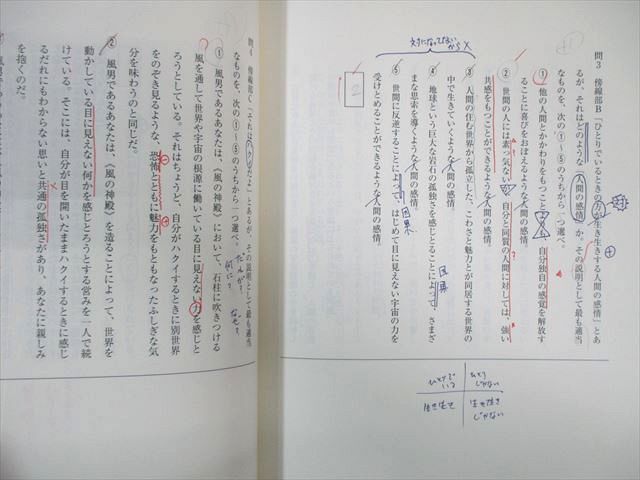 問3 傍線部B「ひとりでいるときの方が生き生きする人間の感情」とあ
るが、それはどのような人間の感情か。その説明として最も適当
なものを、次の①〜⑤のうちから一つ選べ。
① 他の人間とかかわりをもつこと
自分独自の感覚を解放す
ることに喜びをおぼえるような人間の感情。
② 世間の人には素っ気ない
自分と同質の人間に対しては、強い
共感をもつことができるような人間の感情。
③ 人間の住む世界から孤立した、こわさと魅力とが同居する世界の
中で生きていくような人間の感情。
④ 地球という巨大な岩石の孤独さを感じとることによって、さまざ
まな思索を導くような人間の感情。
⑤ 世間に反逆することによって、はじめて目に見えない宇宙の力を
受けとめることができるような人間の感情。
対になってないから×
因果
因果
2
ひとりでいる
ひとりじゃない
生き生き
生き生きじゃない
問4 傍線部C「それはハクイだよ」とあるが、その説明として最も適当
なものを、次の①〜⑤のうちから一つ選べ。
何に?
なぜ?
① 風男であるあなたは、《風の神殿》において、石柱に吹きつける
風を通して世界や宇宙の根源に働いている目に見えない力を感じと
ろうとしている。それはちょうど、自分がハクイするときに別世界
をのぞき見るような、恐怖とともに魅力をもともなったふしぎな気
分を味わうのと同じだ。
② 風男であるあなたは、《風の神殿》を造ることによって、世界を
動かしている目に見えない何かを感じとろうとする営みを一人で続
けている。そこには、自分が目を開いたままハクイするときに感じ
るだれにもわからない思いと共通の孤独さがあり、あなたに親しみ
を抱くのだ。